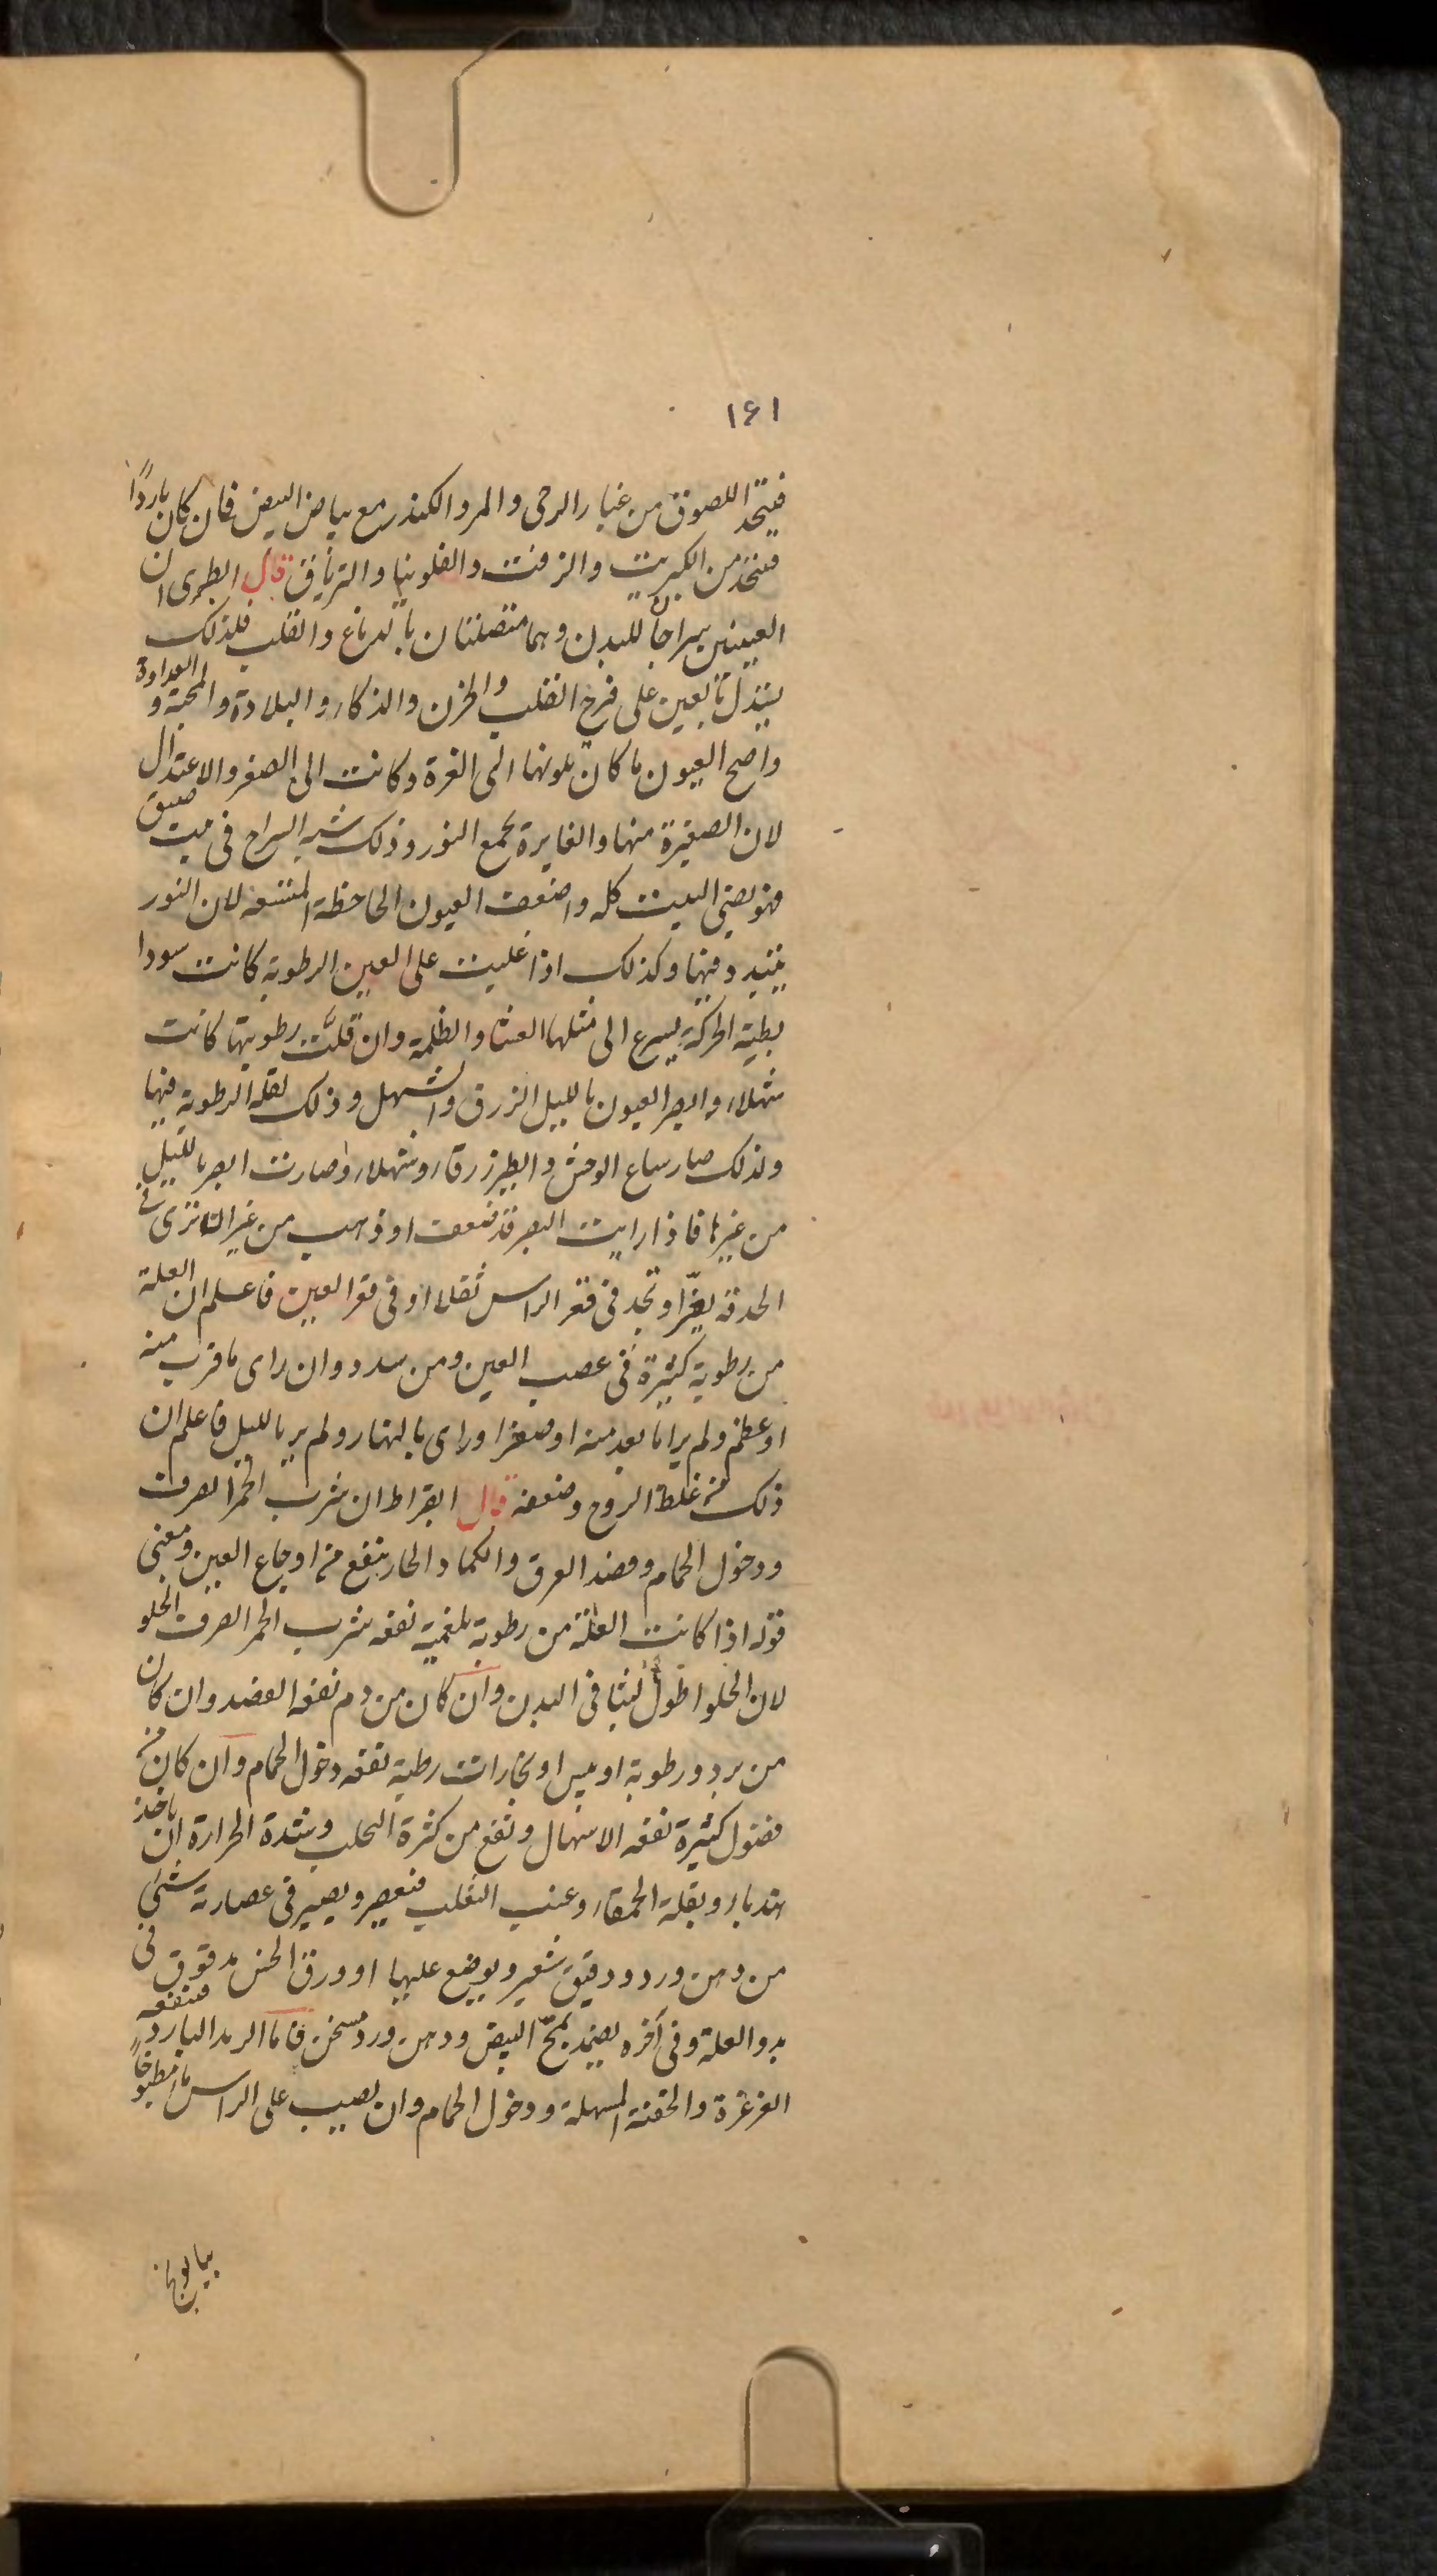 ١٤١
فيتخذ اللصوق من غبار الرحى والمر والكندر مع بياض البيض فان كان باردًا
فيتخذ من الكبريت والزفت والفلونيا والترياق قال الطبرى ان
العينين سراجان للبدن وهما متصلتان بالدماغ والقلب فلذلك
يستدل بالعين على فرح القلب والحزن والذكاء والبلادة والمحبة و العداوة
واصح العيون ما كان لونها الى الغرة وكانت الى الصغر والاعتدال
لان الصغيرة منها والغايرة يجمع النور وذلك شبه السراج فى بيت ضيق
فهو يضئ البيت كله واضعف العيون الجاحظة المتسعة لان النور
يتبدد فيها وكذلك اذا غلبت على العين الرطوبة كانت سودا
بطية الحركة يسرع الى مثلها العشا والظلمة وان قلّت رطوبتها كانت
شهلاء وابصر العيون بالليل الزرق والشهل وذلك لقلة الرطوبة فيها
ولذلك صار سباع الوحش والطير زرقاء وشهلاء وصارت ابصر بالليل
من غيرها فاذا رايت البصر قد ضعف او ذهب من غير ان ترى فى
الحدقة تغيّرا وتجد فى قعر الراس ثقلا او فى قعر العين فاعلم ان العلة
من رطوبة كثيرة فى عصب العين ومن سدد وان راى ما قرب منه
او عظم ولم ير ما بعد منه او صغر او راى بالنهار ولم ير بالليل فاعلم ان
ذلك من غلظ الروح وضعفه قال ابقراط ان شرب الخمر الصرف
ودخول الحمام وفصد العرق والكماد الحار ينفع من اوجاع العين ومعنى
قوله اذا كانت العلة من رطوبة بلغمية نفعه شرب الخمر الصرف الحلو
لان الحلو اطول لبثا فى البدن وان كان من دم نفعه الفصد وان كان
من برد ورطوبة او يبس او بخارات رطبة نفعه دخول الحمام وان كان من
فضول كثيرة نفعه الاسهال وينفع من كثرة التحلب وشدة الحرارة ان ياخذ
هندبا وبقلة الحمقاء وعنب الثعلب فيعصر ويصير فى عصارته شئ
من دهن ورد ودقيق شعير ويوضع عليها او ورق الخس مدقوق فى
بدو العلة وفى آخره يضمد بمحّ البيض ودهن ورد مسخن فاما الرمد البارد فينفعه
الغرغرة والحقنة المسهلة ودخول الحمام وان يصب على الراس ماء مطبوخًا